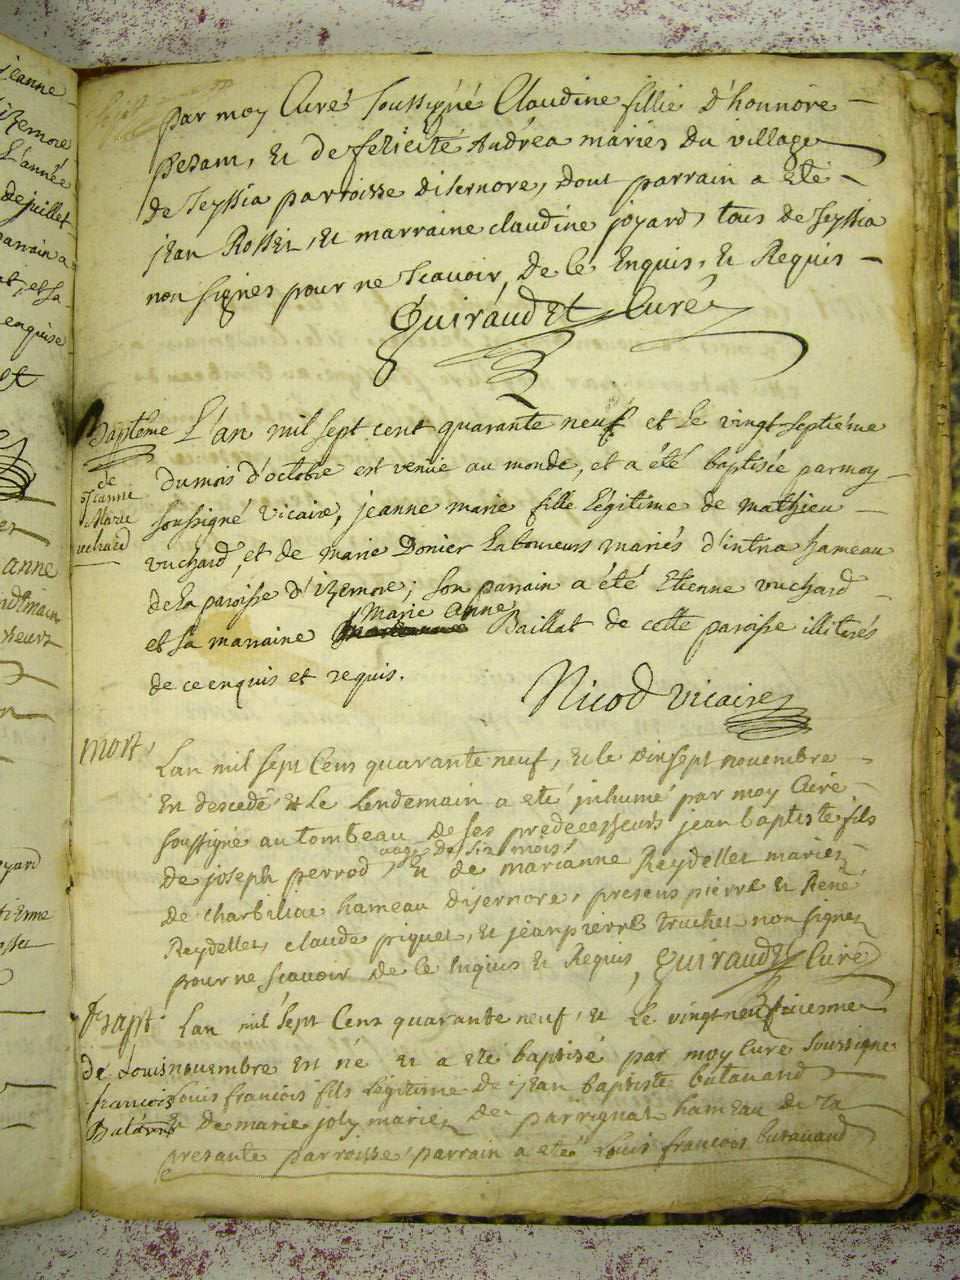 jeanne
izernore
L'année
de juillet
parrain a
et sa
enquise
par moy Curé soussigné Claudine fillie d'honnore
pesam, et de felicité Andréa mariés du village
de Seyssia parroisse disernore, dont parrain a eté
jean Rosset, et marraine claudine joyard, tous de Seyssia
non signés pour ne scavoir, de ce Enquis, et Requis
Guiraudet Curé
Baptême L'an mil sept cent quarante neuf et le vingt septiéme
de Jeanne Marie vuchard
du mois d'octobre est venüe au monde, et a été baptisée par moy
soussigné vicaire, jeanne marie fille légitime de mathieu
vuchard, et de marie Donier Laboureurs mariés d'intria hameau
de la paroisse d'izernore; son parrain a été Etienne vuchard
et sa marraine Marie Anne Baillat de cette paroisse illiterés
de ce enquis et requis.
Nicod vicaire
mort
Lan mil sept Cens quarante neuf, et le dixsept novembre
En descedé et Le Lendemain a eté inhumé par moy Curé
soussigné au tombeau de ses predecesseurs jean baptiste fils
de joseph perrod, aagé de six mois et de marianne Reydellet mariés
de charbiliac hameau disernore, presens pierre et René
Reydellet, claude piquet, et jean pierre truchet non signés
pour ne scavoir de ce Enquis et Requis, Guiraudet Curé
Bapt
de Louis
francois
Lan mil sept Cens quarante neuf, et Le vingt neufviesme
novembre En né et a eté baptisé par moy Curé soussigné
Louis francois fils Legitime de jean baptiste butavand
et de marie joly mariés de parrignat hameau de La
presante parroisse, parrain a eté Louis francois butavand